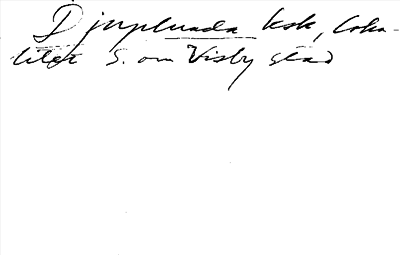 Djupluada ksk, loka-
litet S. om Visby stad